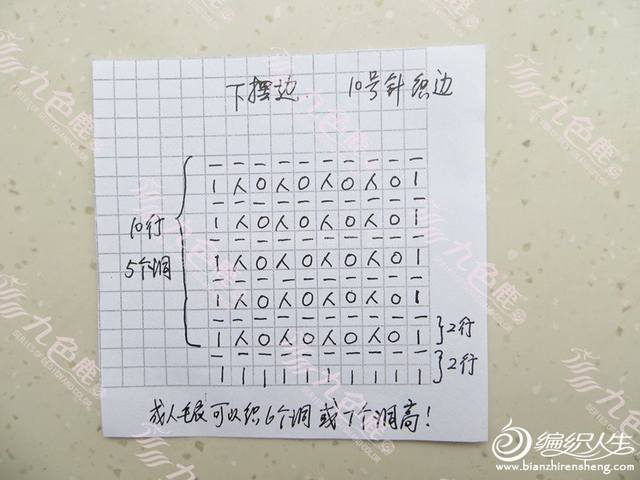 下摆边. 10号针织边
— — — — — — — — — —
1 人 O 人 O 人 O 人 O 1
— — — — — — — — — —
1 人 O 人 O 人 O 人 O 1
— — — — — — — — — —
1 人 O 人 O 人 O 人 O 1
— — — — — — — — — —
1 人 O 人 O 人 O 人 O 1
— — — — — — — — — —
1 人 O 人 O 人 O 人 O 1
— — — — — — — — — —
1 1 1 1 1 1 1 1 1 1
10行
5个洞
}2行
}2行
成人毛衣可以织6个洞或7个洞高!
九色鹿
编织人生
www.bianzhirensheng.com